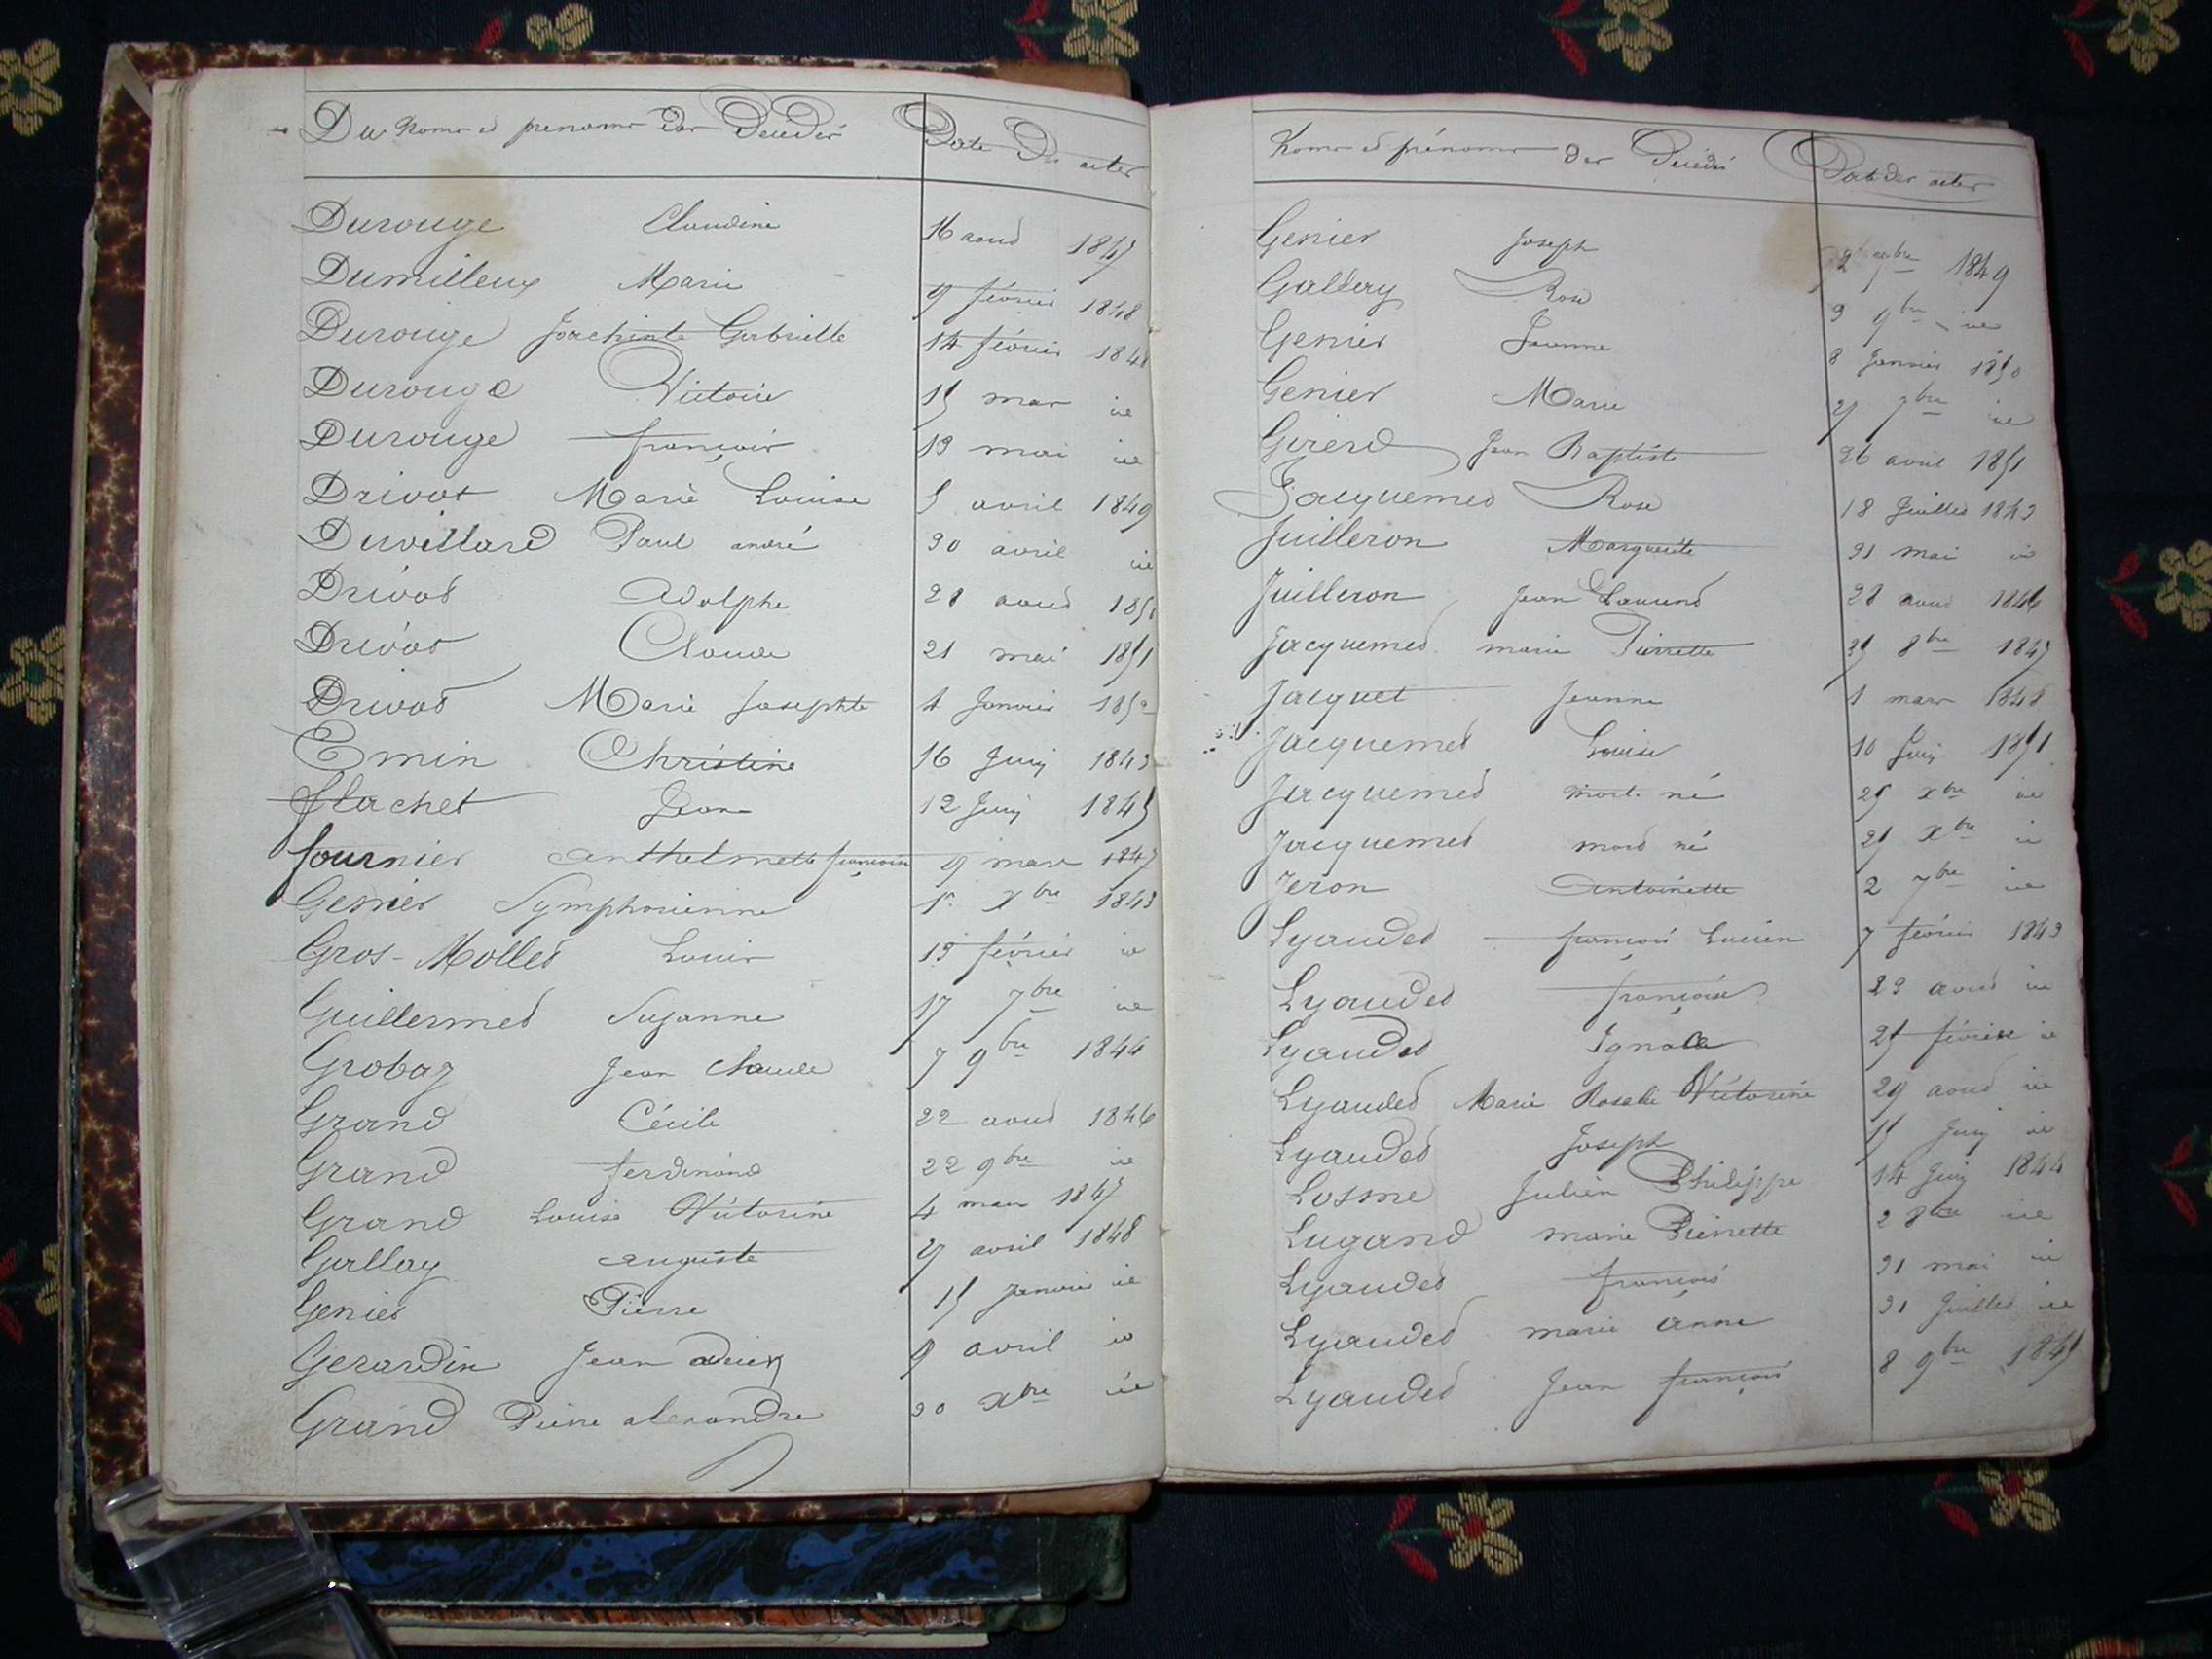 Du Noms et prénoms des Décédés Date Des actes
Durouge Claudine 16 aout 1847
Dumilleux Marie 9 février 1848
Durouge Joachinte Gabrielle 14 février 1848
Durouge Victoire 15 mars id
Durouge françois 13 mai id
Drivot Marie Louise 5 avril 1849
Duvillard Paul andré 30 avril id
Drivot Adolphe 28 aout
Drivot Claude 21 mai 1851
Drivot Marie Josephte 4 Janvier 1852
Emin Christine 16 Juin 1843
flachet Jean 12 Juin 1845
fournier anthelmette françoise 9 mars 1847
Genier Symphorienne 15 Xbre 1843
Gros-Mollet Louis 13 février id
Guillermet Suzanne 17 7bre id
Grobaz Jean Claude 7 9bre 1844
Grand Cécile 22 aout 1846
Grand ferdinand 22 9bre id
Grand Louise Victorine 4 mars 1847
Gallay auguste 27 avril 1848
Genier Pierre 15 Janvier id
Gerardin Jean 9 avril id
Grand Pierre alexandre 30 Xbre id
Noms et prénoms des Décédés Date des actes
Genier Joseph 1849
Gallay Rose 3 9bre id
Genier Jeanne 8 Janvier 1850
Genier Marie 27 7bre id
Girerd Jean Baptiste 26 avril 1851
Jacquemet Rose 18 Juillet 1843
Juilleron Marguerite 31 mai id
Juilleron Jean Laurent 28 aout 1846
Jacquemet marie Pierrette 8bre 1847
Jacquet Jeanne 1 mars 1848
Jacquemet Louise 10 Juin 1851
Jacquemet mort né 25 Xbre id
Jacquemet mort né 25 Xbre id
Jeron antoinette 2 7bre id
Lyaudet françois Lucien 7 février 1843
Lyaudet françoise 23 aout id
Lyaudet Ignace 25 février id
Lyaudet Marie Rosalie Victorine 29 aout id
Lyaudet Joseph 15 Juin id
Losme Julien Philippe 14 Juin 1844
Lugand marie Pierrette 2 8bre id
Lyaudet françois 31 mai id
Lyaudet marie anne 31 Juillet id
Lyaudet Jean françois 8 9bre 1845